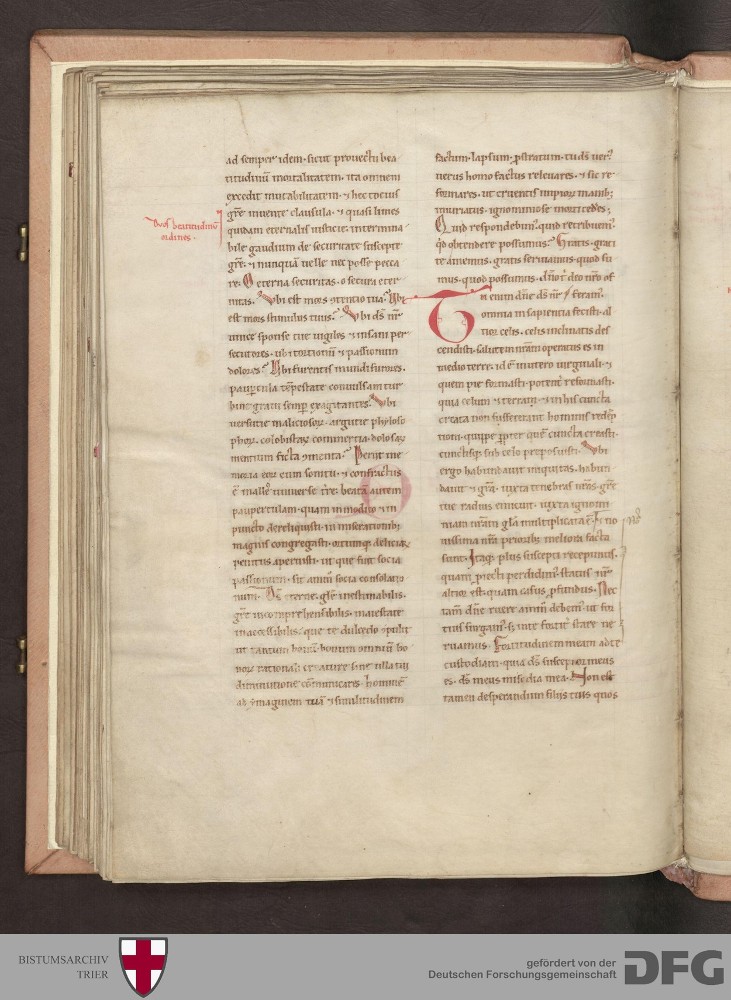 Duos beatitudinū
ordines.
ad semper idem. sicut prouectū bea
titudinū mortalitatem. ita omnem
excedit mutabilitatem. & hec tocius
gr̄e muente clausula. & quasi limes
quidam eternalis iusticie. intermina
bile gaudium de securitate suscepte
gr̄e. & nunquā uelle nec posse pecca
re. O eterna securitas. o secura eter
nitas. Vbi est mors tua. Vbi
est mors stimulus tuus. Vbi dn̄s nr̄
unice sponse tue uigiles & insani per
secutores. ubi tortionū & passionum
dolores. Vbi furentis mundi furores.
paupercula tēpestate conuulsam tur
bine graui semp exagitantes. Vbi
uersutie maliciosoꝝ. argutie phyloso
phoꝝ. commertia. dolosaꝝ
mentium ficta ꝯmenta. Periit me
moria eoꝝ cum sonitu. & confractus
ē malle᷒ uniuerse tr̄e. beatā autem
paupertulam. quam in modico & in
puncto dereliquisti. in miserationib;
magnis congregasti. ortumq; deliciaꝝ
penitus aperuisti. ut que fuit socia
passionum. sit amm socia consolatio
num. Ds̄ eterne. gl̄e inestimabilis.
gr̄e incomprehensibilis. maiestate
inaccessibilis. que te dulcedo ꝯpulit
ut tantum bonū. bonum omniū bo
noꝝ rationali creature sine ulla tui
diminutione cōmunicares. hominē
ad ymaginem tuā & similitudinem
factum. lapsum. ꝓstratum. tu ds̄ uer᷒
uerus homo factus releuares. & sic re
formares. ut cruentis impioꝝ manib;
mutatus. ignominiose morti cedes;
Quid respondebim᷒. quid retribuem᷒.
qd obtendere possumus. Gratis. grati
te amemus. gratis seruamus. quod su
mus. quod possumus. dn̄o & deo nr̄o of
feram᷒.
Tu enim dn̄e ds̄ nr̄
omnia in sapientia fecisti. al
tior celis. celis inclinatis des
cendisti. salutem nr̄am operatus es in
medio terre. id ē in utero uirginali. &
quem pie formasti. potent reformasti.
quia celum & terram. & in his cuncta
creata non sufficerant hominis redēp
tioni. quippe ꝓpter quē cuncta creasti.
cunctisq; sub celo preposuisti. Vbi
ergo habundauit iniquitas. habun
dauit & gr̄a. iuxta tenebras nr̄as. gr̄e
tue radius emicuit. iuxta ignomi
niam nr̄am gl̄a multiplicata ē. & no
uissima nr̄a priorib; meliora facta
sunt. Itaq; plus suscepti recepimus.
quam piecti perdidim᷒. status nr̄
altior est. quam casus ꝓfundus. Nec
tam dn̄e tuere animū debem᷒. ut for
tius surgam᷒. s; in te fortit stare ne
ruamus. Fortitudinem meam ad te
custodiam. quia ds̄ susceptor meus
es. ds̄ meus mis̄dia mea. Non est
tamen desperandum filijs tuis quos
BISTUMSARCHIV
TRIER
gefördert von der
Deutschen Forschungsgemeinschaft
DFG